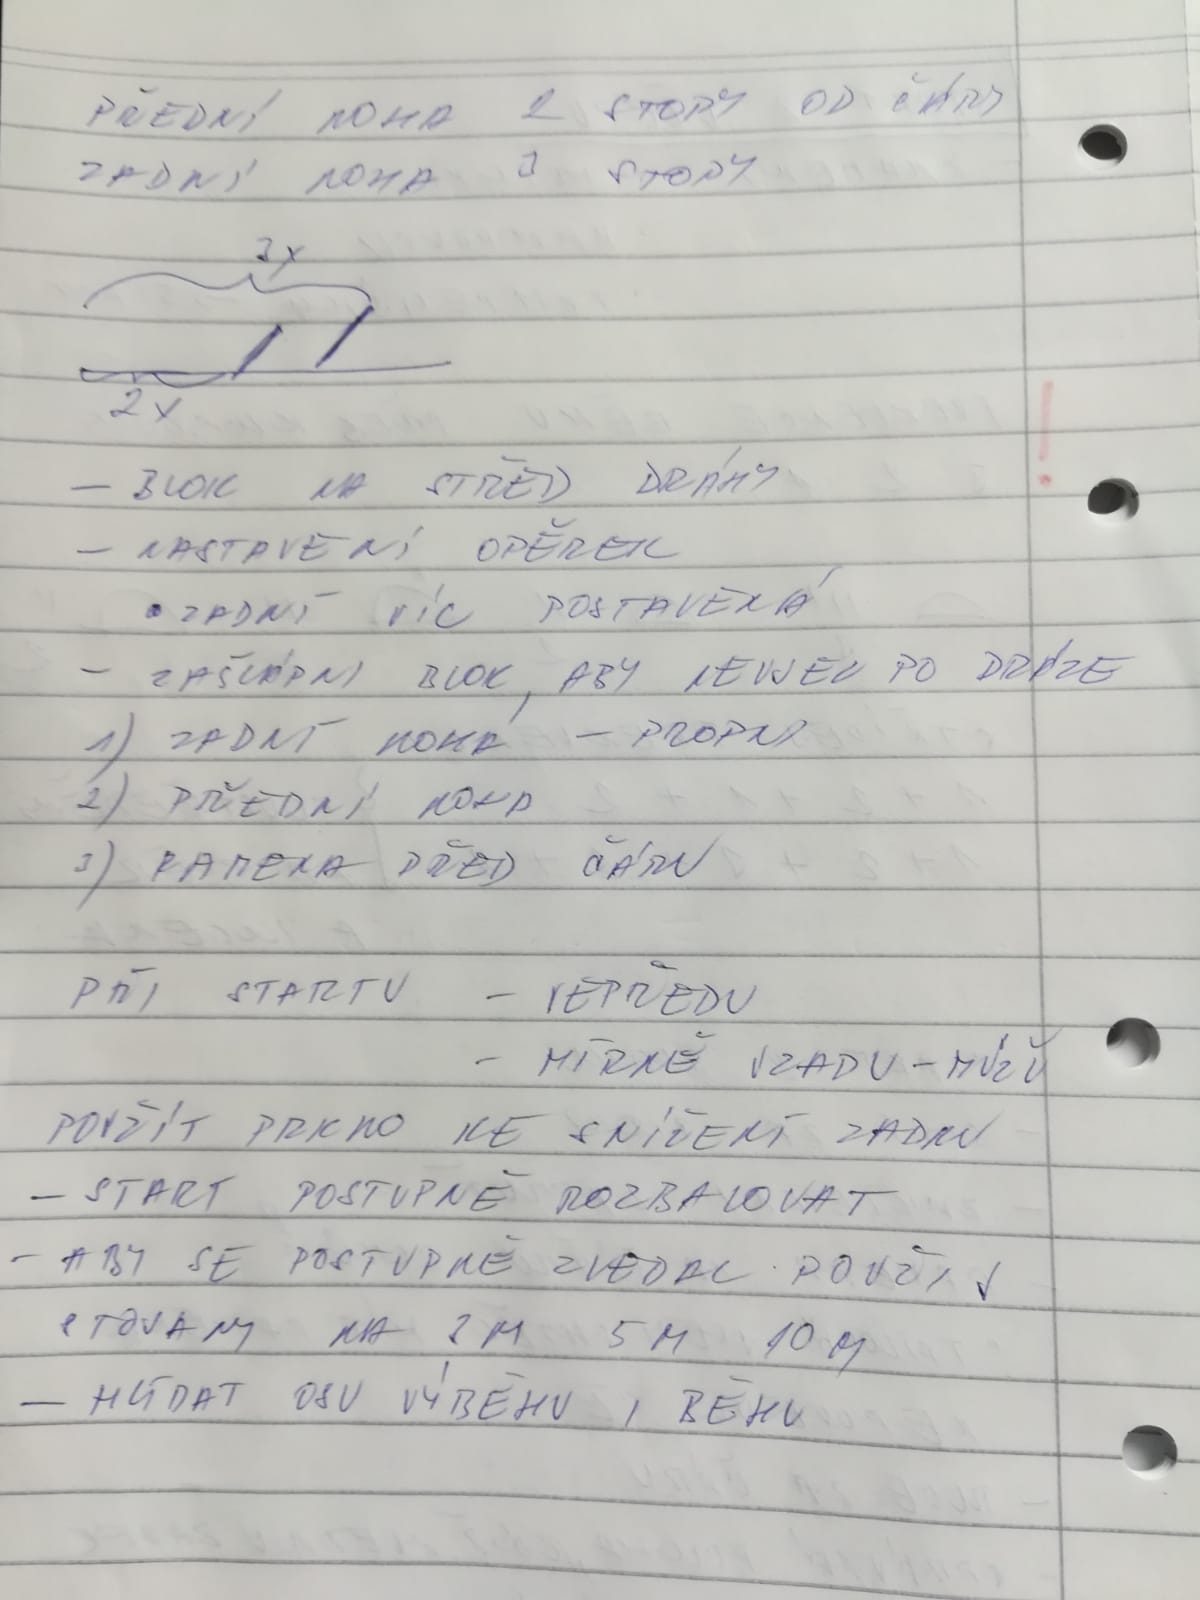 PŘEDNÍ NOHA 2 STOPY OD ČÁRY
ZADNÍ NOHA 3 STOPY
3x
2x
- BLOK NA STŘED DRÁHY
- NASTAVENÍ OPĚREK
• ZADNÍ VÍC POSTAVENÁ
- ZAŠLÁPNI BLOK, ABY NEVJEL PO DRÁZE
1) ZADNÍ NOHA - PROPNI
2) PŘEDNÍ NOHA
3) RAMENA PŘED ČÁRU
PŘI STARTU - VEPŘEDU
- MÍRNĚ VZADU - MŮŽU
POUŽÍT PRKNO KE SNÍŽENÍ ZADKU
- START POSTUPNĚ ROZBALOVAT
- ABY SE POSTUPNĚ ZVEDAL POUŽIJ
STOVANY NA 2M 5M 10M
- HLÍDAT OSU VÝBĚHU I BĚHU